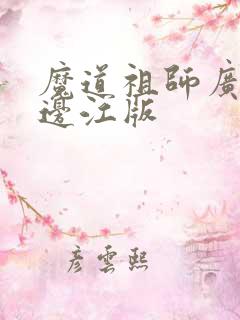 魔道祖師廣
邊江版
彦雲熙